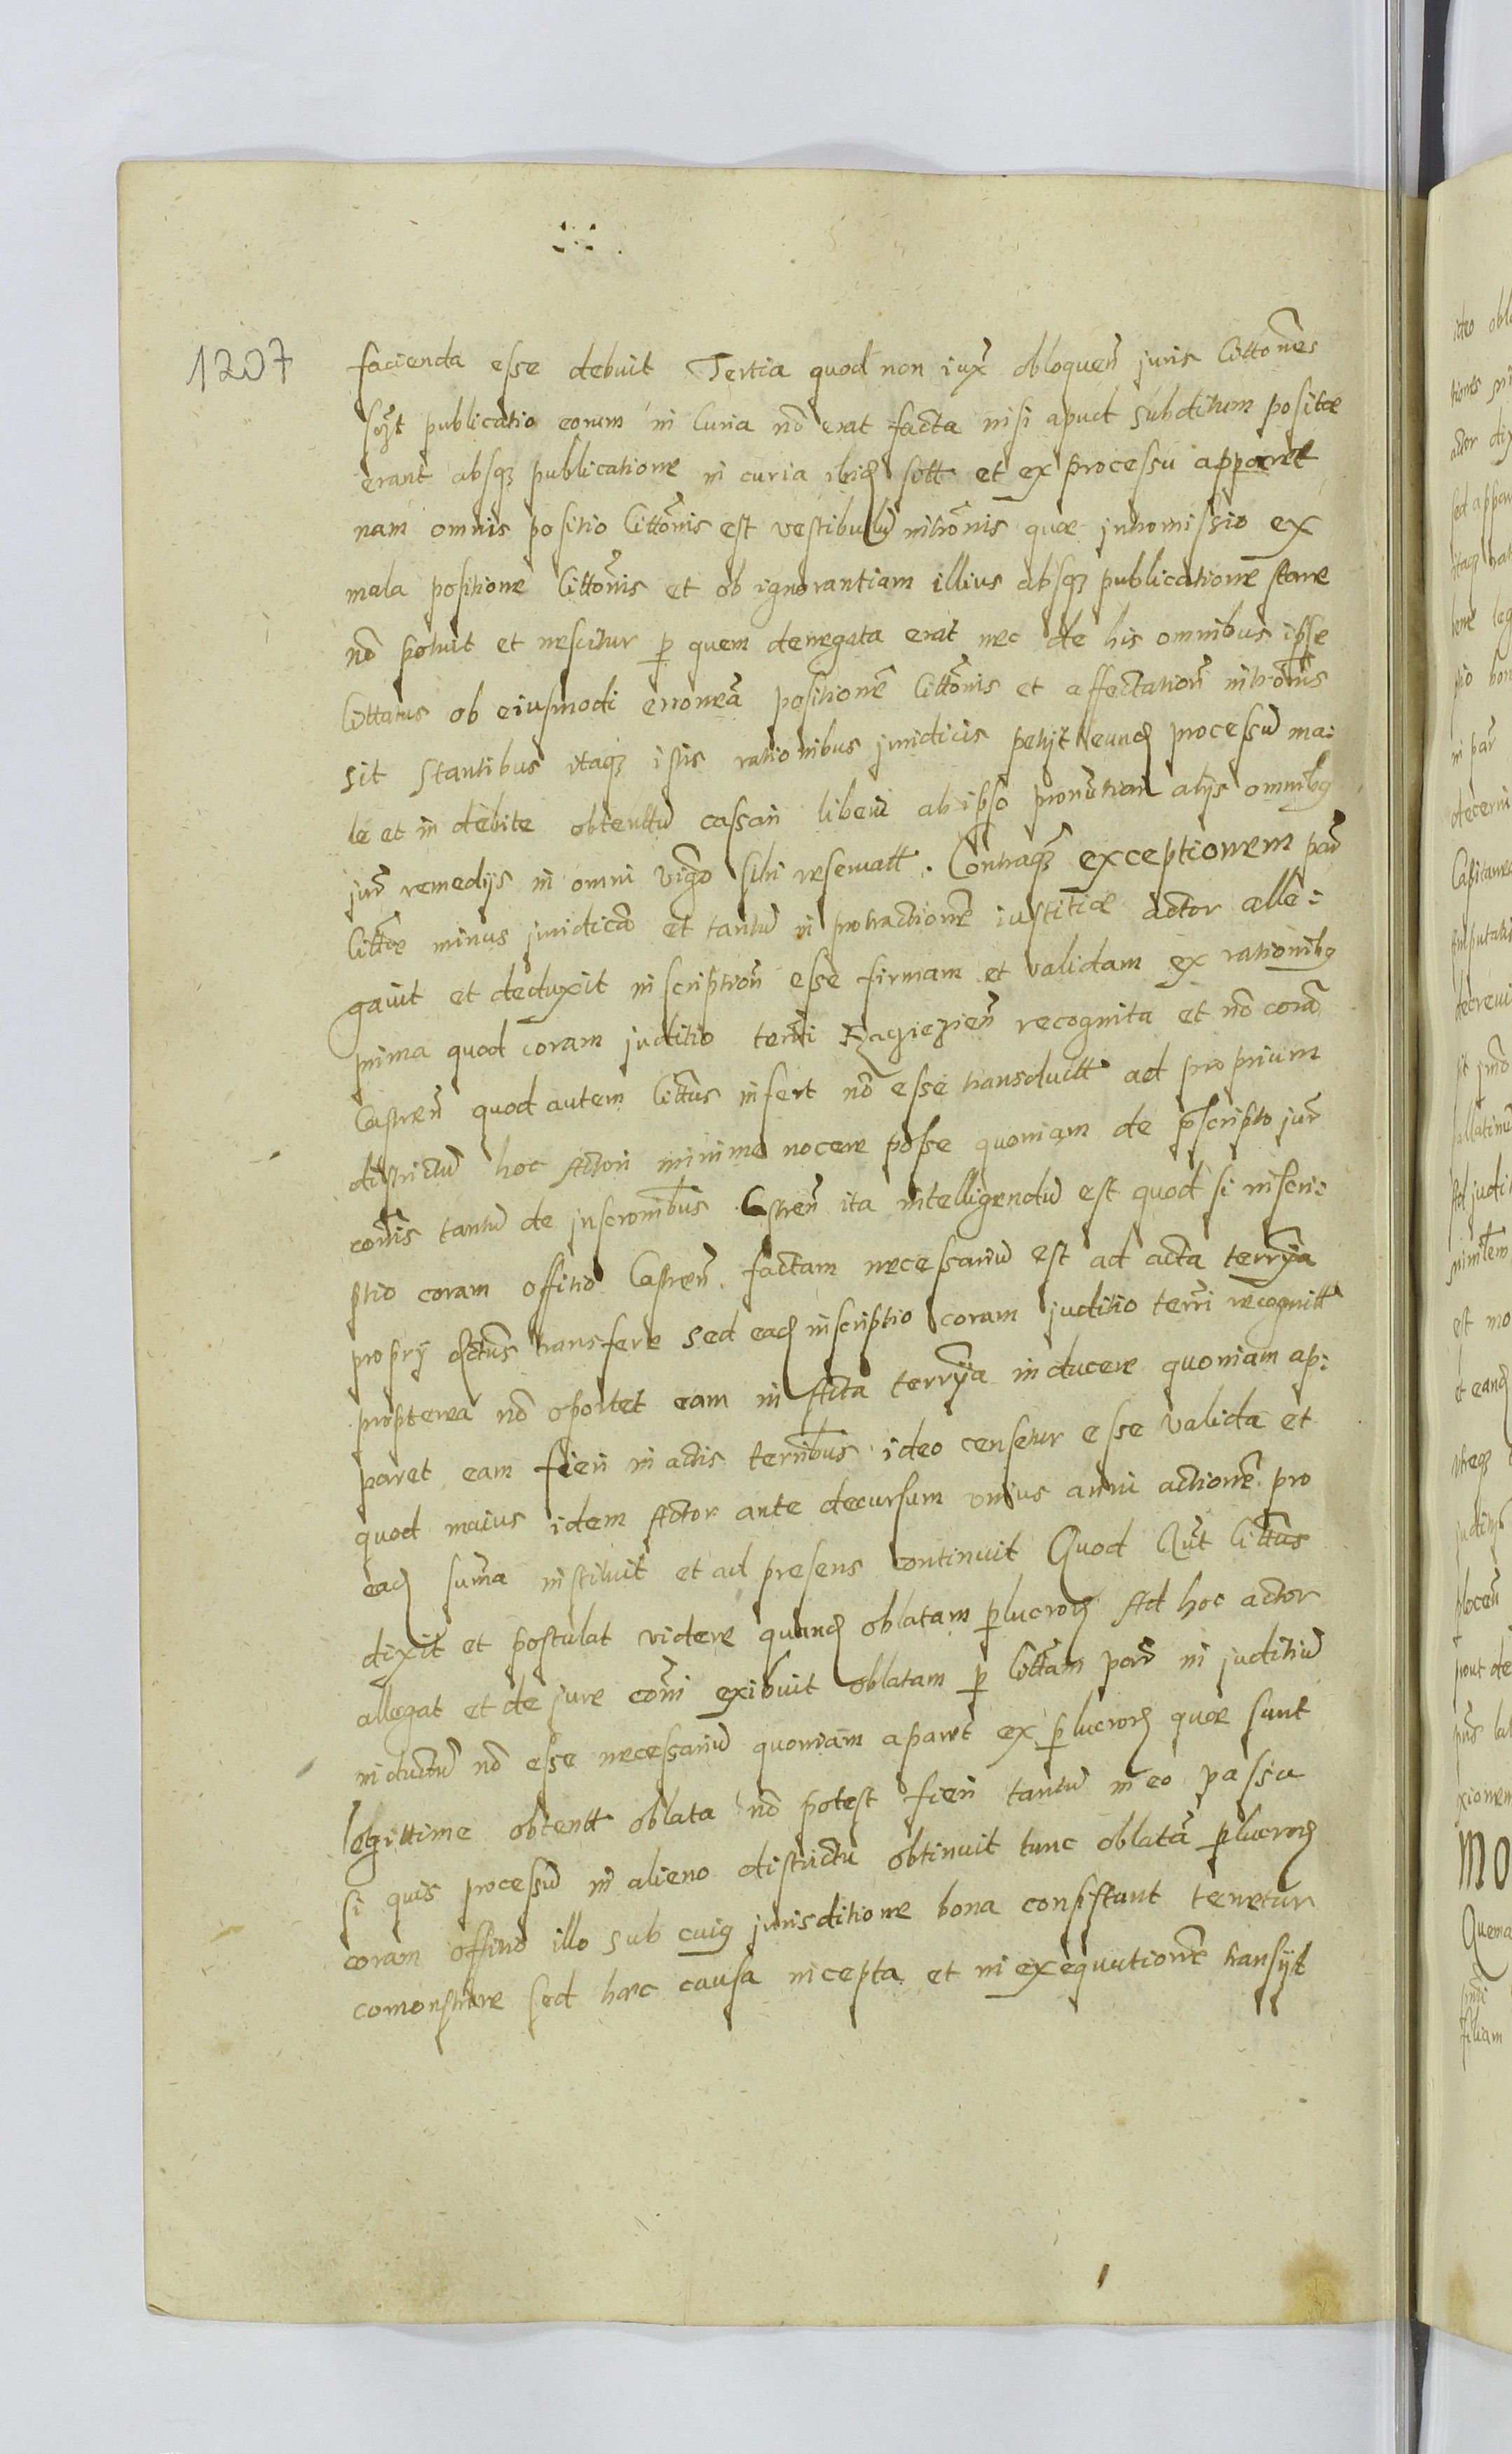 1207
facienda esse debuit Tertia quod non iux̃ obloquen̄ juris Citto͞nes
set publicatio eorum in Curia nō erat facta nisi apud subditum positæ
erant absqꝫ publicatione in curia ibidꝫ sitt et ex processu apparet
nam omnis positio Citto͞nis est vestibulū intro͞nis quæ intromissio ex
mala positione Citto͞nis et ob ignorantiam illius absqꝫ publicatione stare
nō potuit et nescitur ꝑ quem denegata erat nec de his omnibus ipse
Cittatus ob eiusmodi erroneā positionē Citto͞nis et affectation̄ intro͞nis
sit stantibus itaqꝫ istis rationibus juridicis petijt eundꝫ processū ma:
le et in debite obtentū cassari liberū ab ipso pronūtiari alijs omnibꝫ
jur̄ remedijs in omni vigo͞ sibi reservatt. Contraqꝫ exceptionem par̄
Cittæ minus juridicā et tantū in protractionē iustitiæ actor alle:
gavit et deduxit inscription̄ esse firmam et validam ex rationibꝫ
prima quod coram juditio terr̄i recognita et nō corā
Castren̄ quod autem Citt͞us infert nō esse transductt ad proprium
districtū hoc Actori minime nocere posse quoniam de p̄scripto jur̄
co͞nis tantū de inscro͞nibus Castren̄ ita intelligendū est quod si inscri:
ptio coram offitio Castren̄ factam necessariū est ad acta terr͞ria
proprij d͞ctus transferre sed eadꝫ inscriptio coram juditio terr̄i recognitt
propterea nō oportet eam in Acta terr͞ria inducere quoniam ap:
paret eam fieri in actis terr͞nibus ideo censetur esse valida et
quod maius idem Actor ante decursum unius anni actionē pro
eadꝫ suma instituit et ad presens continuit Quod Citt͞us
dixit et postulat videre quandꝫ oblatam ꝑlucrorꝫ Ad hoc actor
allegat et de jure co͞ni exibuit oblatam ꝑ Citt͞am par̄ in juditiū
inductū nō esse necessariū quoniam aparet ex ꝑlucrorꝫ quæ sunt
legittime obtentt oblata nō potest fieri tantū in eo passu
si quis processū in alieno districtu obtinuit tunc oblatā ꝑlucrorꝫ
coram offitio illo sub cuiꝫ jurisditione bona consistant tenetur
comonstrare sed hæc causa incepta et in exequutionē transijt